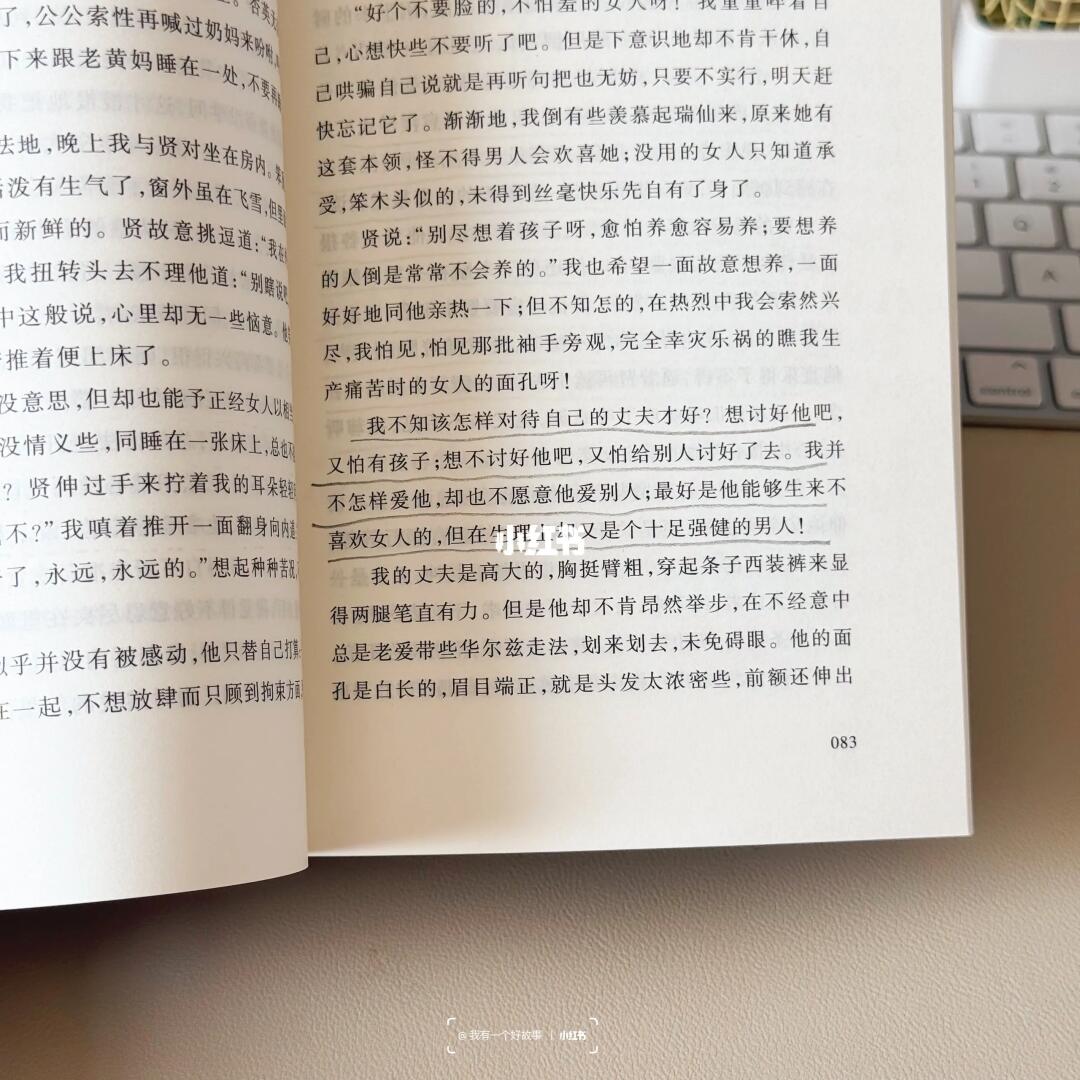 了，公公索性再喊过奶妈来吩咐，
下来跟老黄妈睡在一处，不要再
法地，晚上我与贤对坐在房内。
活泼有生气了，窗外虽在飞雪，但里
而新鲜的。贤故意挑逗道：“我
我扭转头去不理他道：“别瞎说
中这般说，心里却无一些恼意。他
推着便上床了。
没意思，但却也能予正经女人以相当
没情义些，同睡在一张床上，总也不
？贤伸过手来拧着我的耳朵轻轻
不？”我嗔着推开一面翻身向内道
了，永远，永远的。”想起种种苦况，
似乎并没有被感动，他只替自己打算
在一起，不想放肆而只顾到拘束方面
“好个不要脸的，不怕羞的女人呀！我重重啐着自
己，心想快些不要听了吧。但是下意识地却不肯干休，自
己哄骗自己说就是再听句把也无妨，只要不实行，明天赶
快忘记它了。渐渐地，我倒有些羡慕起瑞仙来，原来她有
这套本领，怪不得男人会欢喜她；没用的女人只知道承
受，笨木头似的，未得到丝毫快乐先自有了身了。
贤说：“别尽想着孩子呀，愈怕养愈容易养；要想养
的人倒是常常不会养的。”我也希望一面故意想养，一面
好好地同他亲热一下；但不知怎的，在热烈中我会索然兴
尽，我怕见，怕见那批袖手旁观，完全幸灾乐祸的瞧我生
产痛苦时的女人的面孔呀！
我不知该怎样对待自己的丈夫才好？想讨好他吧，
又怕有孩子；想不讨好他吧，又怕给别人讨好了去。我并
不怎样爱他，却也不愿意他爱别人；最好是他能够生来不
喜欢女人的，但在生理上却又是个十足强健的男人！
我的丈夫是高大的，胸挺臂粗，穿起条子西装裤来显
得两腿笔直有力。但是他却不肯昂然举步，在不经意中
总是老爱带些华尔兹走法，划来划去，未免碍眼。他的面
孔是白长的，眉目端正，就是头发太浓密些，前额还伸出
083
小红书
control
Q
A
@我有一个好故事 | 小红书